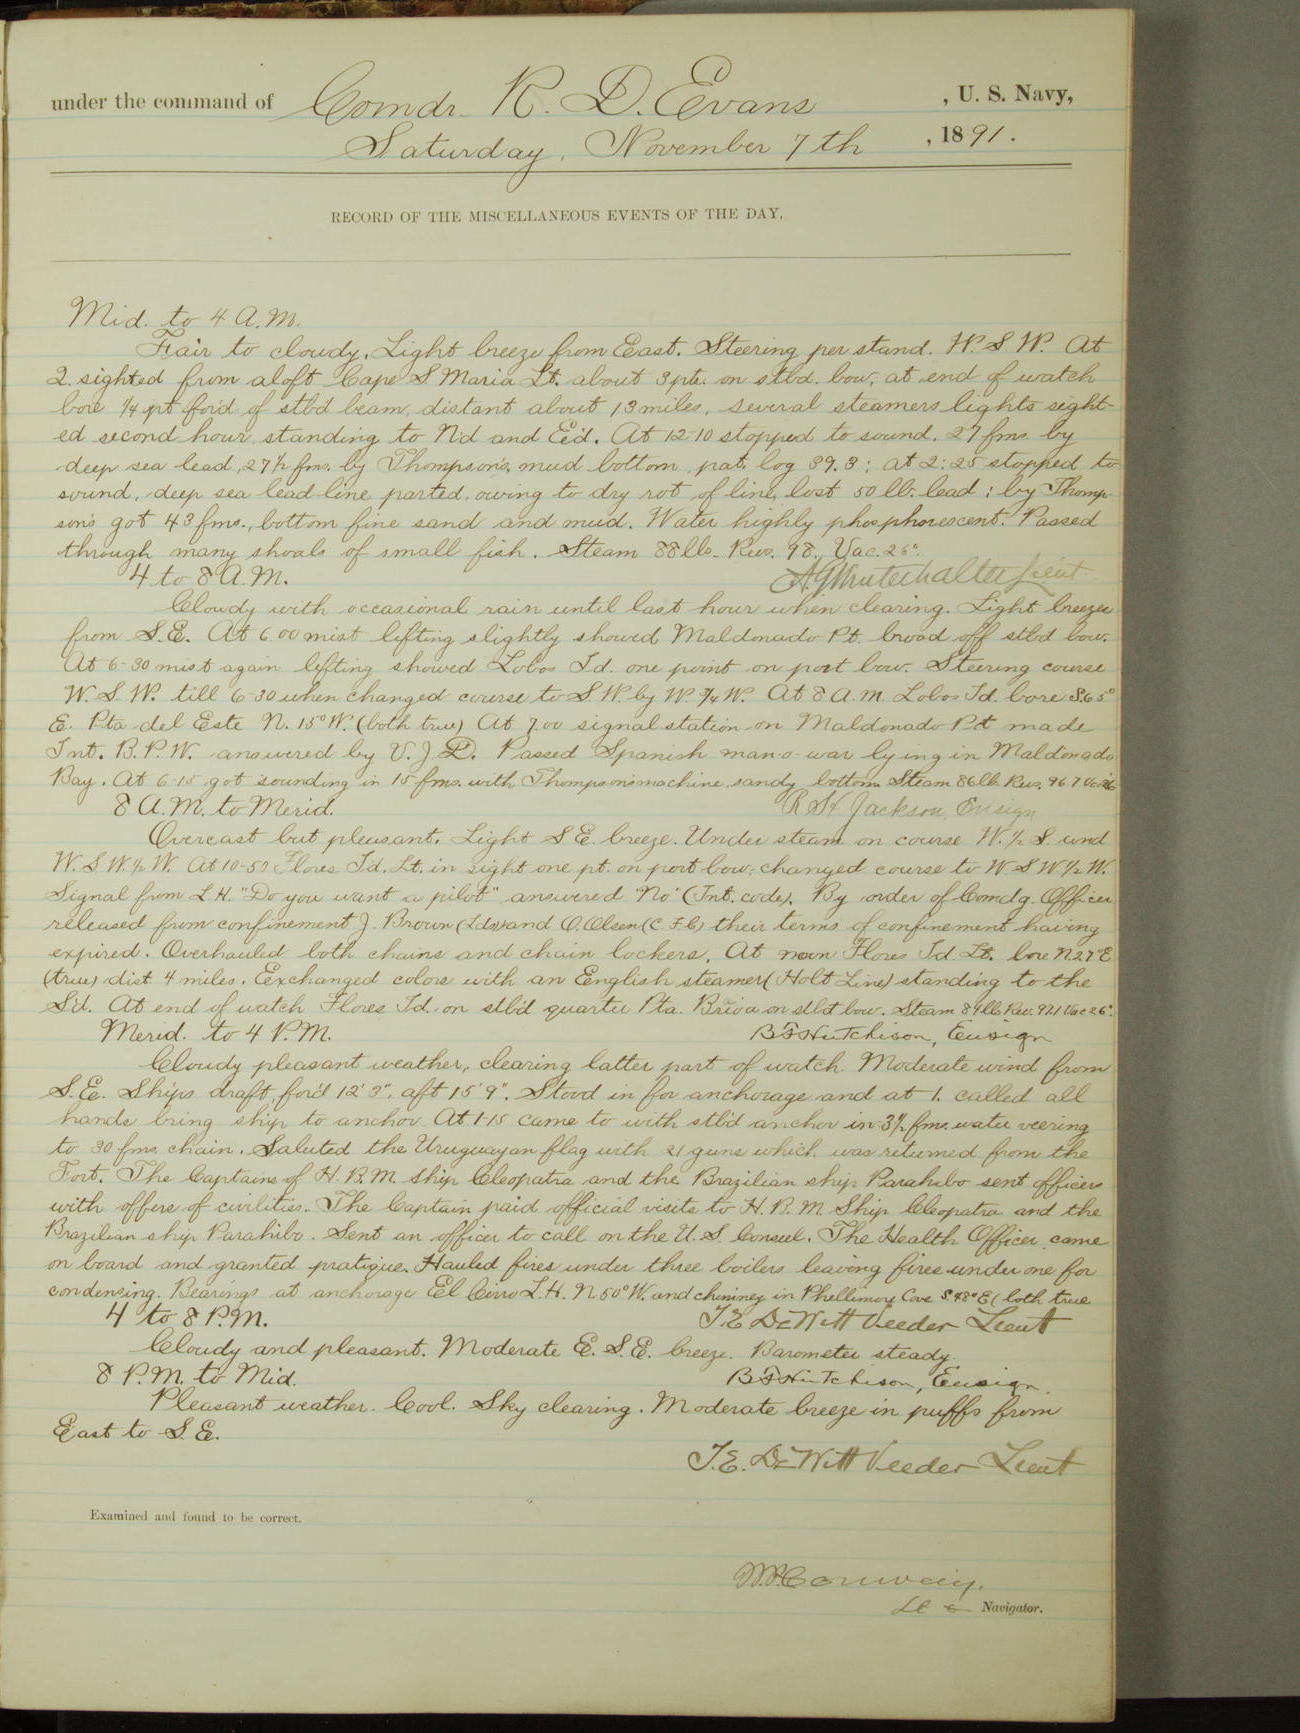 under the command of Comdr. R. D. Evans, U. S. Navy,
Saturday, November 7th, 1891.
RECORD OF THE MISCELLANEOUS EVENTS OF THE DAY.
Mid. to 4 A.M.
Fair to cloudy. Light breeze from East. Steering per stand. W.S.W. At
2 sighted from aloft Cape S Maria Lt. about 3 pts. on stbd. bow; at end of watch
bore 1/4 pt for'd of stb'd beam, distant about 13 miles, several steamers lights sight-
ed second hour standing to N'd and E'd. At 12-10 stopped to sound. 27 fms. by
deep sea lead, 27 1/2 fms. by Thompson's, mud bottom, pat. log 39.3; at 2:25 stopped to
sound, deep sea lead line parted, owing to dry rot of line, lost 50 lb. lead; by Thomp-
son's got 43 fms., bottom fine sand and mud. Water highly phosphorescent. Passed
through many shoals of small fish. Steam 88 lbs. Revs. 98. Vac. 26".
4 to 8 A.M. A.G. Winterhalter Lieut.
Cloudy with occasional rain until last hour when clearing. Light breezes
from S.E. At 6 00 mist lifting slightly showed Maldonado Pt. broad off stb'd bow.
At 6-30 mist again lifting showed Lobos Id. one point on port bow. Steering course
W.S.W. till 6-30 when changed course to S.W. by W. 3/4 W. At 8 A.M. Lobos Id. bore S.65°
E. Pta del Este N. 15° W. (both true) At 7.00 signal station on Maldonado Pt made
Int. B.P.W. answered by V.J.D. Passed Spanish man-o-war lying in Maldonado
Bay. At 6-15 got sounding in 15 fms. with Thompson's machine, sandy bottom. Steam 86 lb. Revs. 96.7 Vac 26
8 A.M. to Merid. R H Jackson, Ensign
Overcast but pleasant. Light S.E. breeze. Under steam on course W. 1/2 S. and
W.S.W. 1/2 W. At 10-50 Flores Id. Lt. in sight one pt. on port bow; changed course to W S W 1/2 W.
Signal from L.H. "Do you want a pilot" answered "No" (Int. code). By order of Comdg. Officer
released from confinement J. Brown (Lds) and O. Olsen (C.F.C) their terms of confinement having
expired. Overhauled both chains and chain lockers. At noon Flores Id. Lt. bore N 27° E
(true) dist 4 miles. Exchanged colors with an English steamer (Holt Line) standing to the
S'd. At end of watch Flores Id. on stb'd quarter Pta. Brava on stb'd bow. Steam 89 lb Rev. 92.1 Vac 26".
Merid. to 4 P.M. B F Hutchison, Ensign
Cloudy pleasant weather, clearing latter part of watch. Moderate wind from
S.E. Ship's draft, for'd 12' 3", aft 15' 9". Stood in for anchorage and at 1. called all
hands bring ship to anchor. At 1-15 came to with stb'd anchor in 3 1/2 fms. water veering
to 30 fms. chain. Saluted the Uruguayan flag with 21 guns which was returned from the
Fort. The Captains of H.B.M. Ship Cleopatra and the Brazilian ship Parahibo sent officers
with offers of civilities. The Captain paid official visits to H.B.M. Ship Cleopatra and the
Brazilian ship Parahibo. Sent an officer to call on the U.S. Consul. The Health Officer came
on board and granted pratique. Hauled fires under three boilers leaving fires under one for
condensing. Bearings at anchorage El Cirro L.H. N. 50° W. and chimney in Phellimore Cove S. 48° E (both true
4 to 8 P.M. T. E. DeWitt Veeder Lieut
Cloudy and pleasant. Moderate E.S.E. breeze. Barometer steady.
8 P.M. to Mid. B F Hutchison, Ensign.
Pleasant weather. Cool. Sky clearing. Moderate breeze in puffs from
East to S.E.
T.E. DeWitt Veeder Lieut
Examined and found to be correct.
W.P. Conway,
Lt & Navigator.